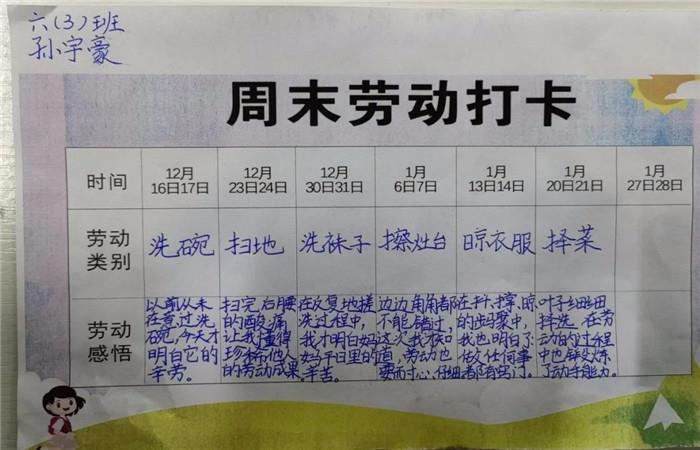 六(3)班
孙宇豪
周末劳动打卡
时间
12月
16日17日
12月
23日24日
12月
30日31日
1月
6日7日
1月
13日14日
1月
20日21日
1月
27日28日
劳动
类别
洗碗
扫地
洗袜子
擦灶台
晾衣服
择菜
劳动
感悟
以前从未
在意过洗
碗,今天才
明白它的
辛劳。
扫完后腰
的酸痛
让我懂得
珍稀他人
的劳动成果。
在反复地搓
洗过程中,
我才明白妈
妈平日里的
辛苦。
边边角角都
不能错过,
这次我才知
道,劳动也
要耐心、仔细
在抖、撑、晾
的步骤中,
我也明白了
做人任何事
都有窍门。
叶子细细
择选,在劳
动的过程
中也锻炼
了动手能力。